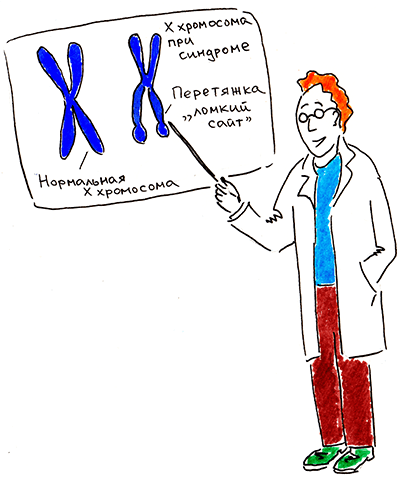 X хромосома
при
синдроме
Перетяжка
„ломкий
сайт”
Нормальная
X хромосома